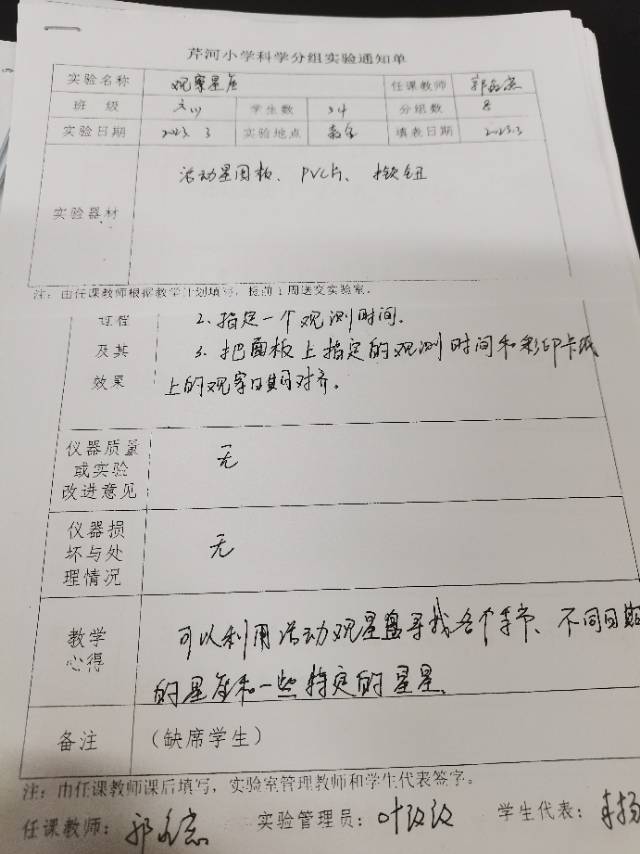 芹河小学科学分组实验通知单
实验名称 观察星座 任课教师 郭
班级 六(1) 学生数 34 分组数 8
实验日期 2023.3 实验地点 教室 填表日期 2023.3
实验器材 活动星图板、PVC片、按钮
注：由任课教师根据教学计划填写，提前1周送交实验室.
过程 2、指定一个观测时间.
及其 3、把面板上指定的观测时间和彩印卡纸
效果 上的观察日期对齐。
仪器质量
或实验 无
改进意见
仪器损
坏与处 无
理情况
教学 可以利用活动观星盘寻找各个季节、不同日期
心得 的星座和一些特定的星星.
备注 (缺席学生)
注：由任课教师课后填写，实验室管理教师和学生代表签字。
任课教师：郭 实验管理员：叶 学生代表：